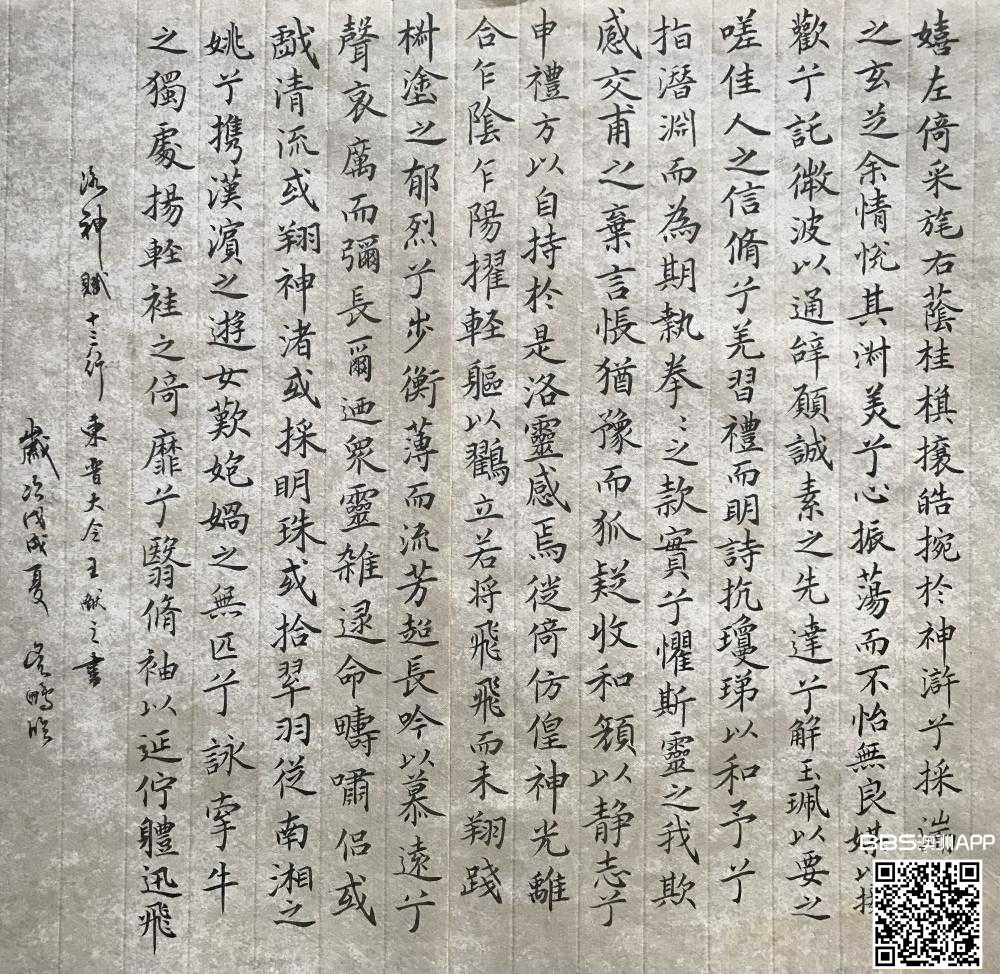 嬉左倚采旄右蔭桂棋攘皓捥於神滸兮採湍
之玄芝余情悅其淑美兮心振蕩而不怡無良媒以接
歡兮託微波以通辭願誠素之先達兮解玉珮以要之
嗟佳人之信脩兮羌習禮而明詩抗瓊珶以和予兮
指潛淵而為期執拳〻之款實兮懼斯靈之我欺
感交甫之棄言悵猶豫而狐疑收和顏以静志兮
申禮方以自持於是洛靈感焉徙倚仿偟神光離
合乍陰乍陽擢輕軀以鸖立若將飛飛而未翔踐
樹塗之郁烈兮步衡薄而流芳超長吟以慕遠兮
聲哀厲而彌長爾迺衆靈雜遝命疇嘯侶或
戲清流或翔神渚或採明珠或拾翠羽從南湘之
姚兮攜漢濱之遊女歎媤媧之無匹兮詠牽牛
之獨處揚輕袿之倚靡兮翳脩袖以延佇體迅飛
洛神賦十三行 東晉大令王獻之書
歲次戊戌夏 鵬臨
BBS澳洲APP